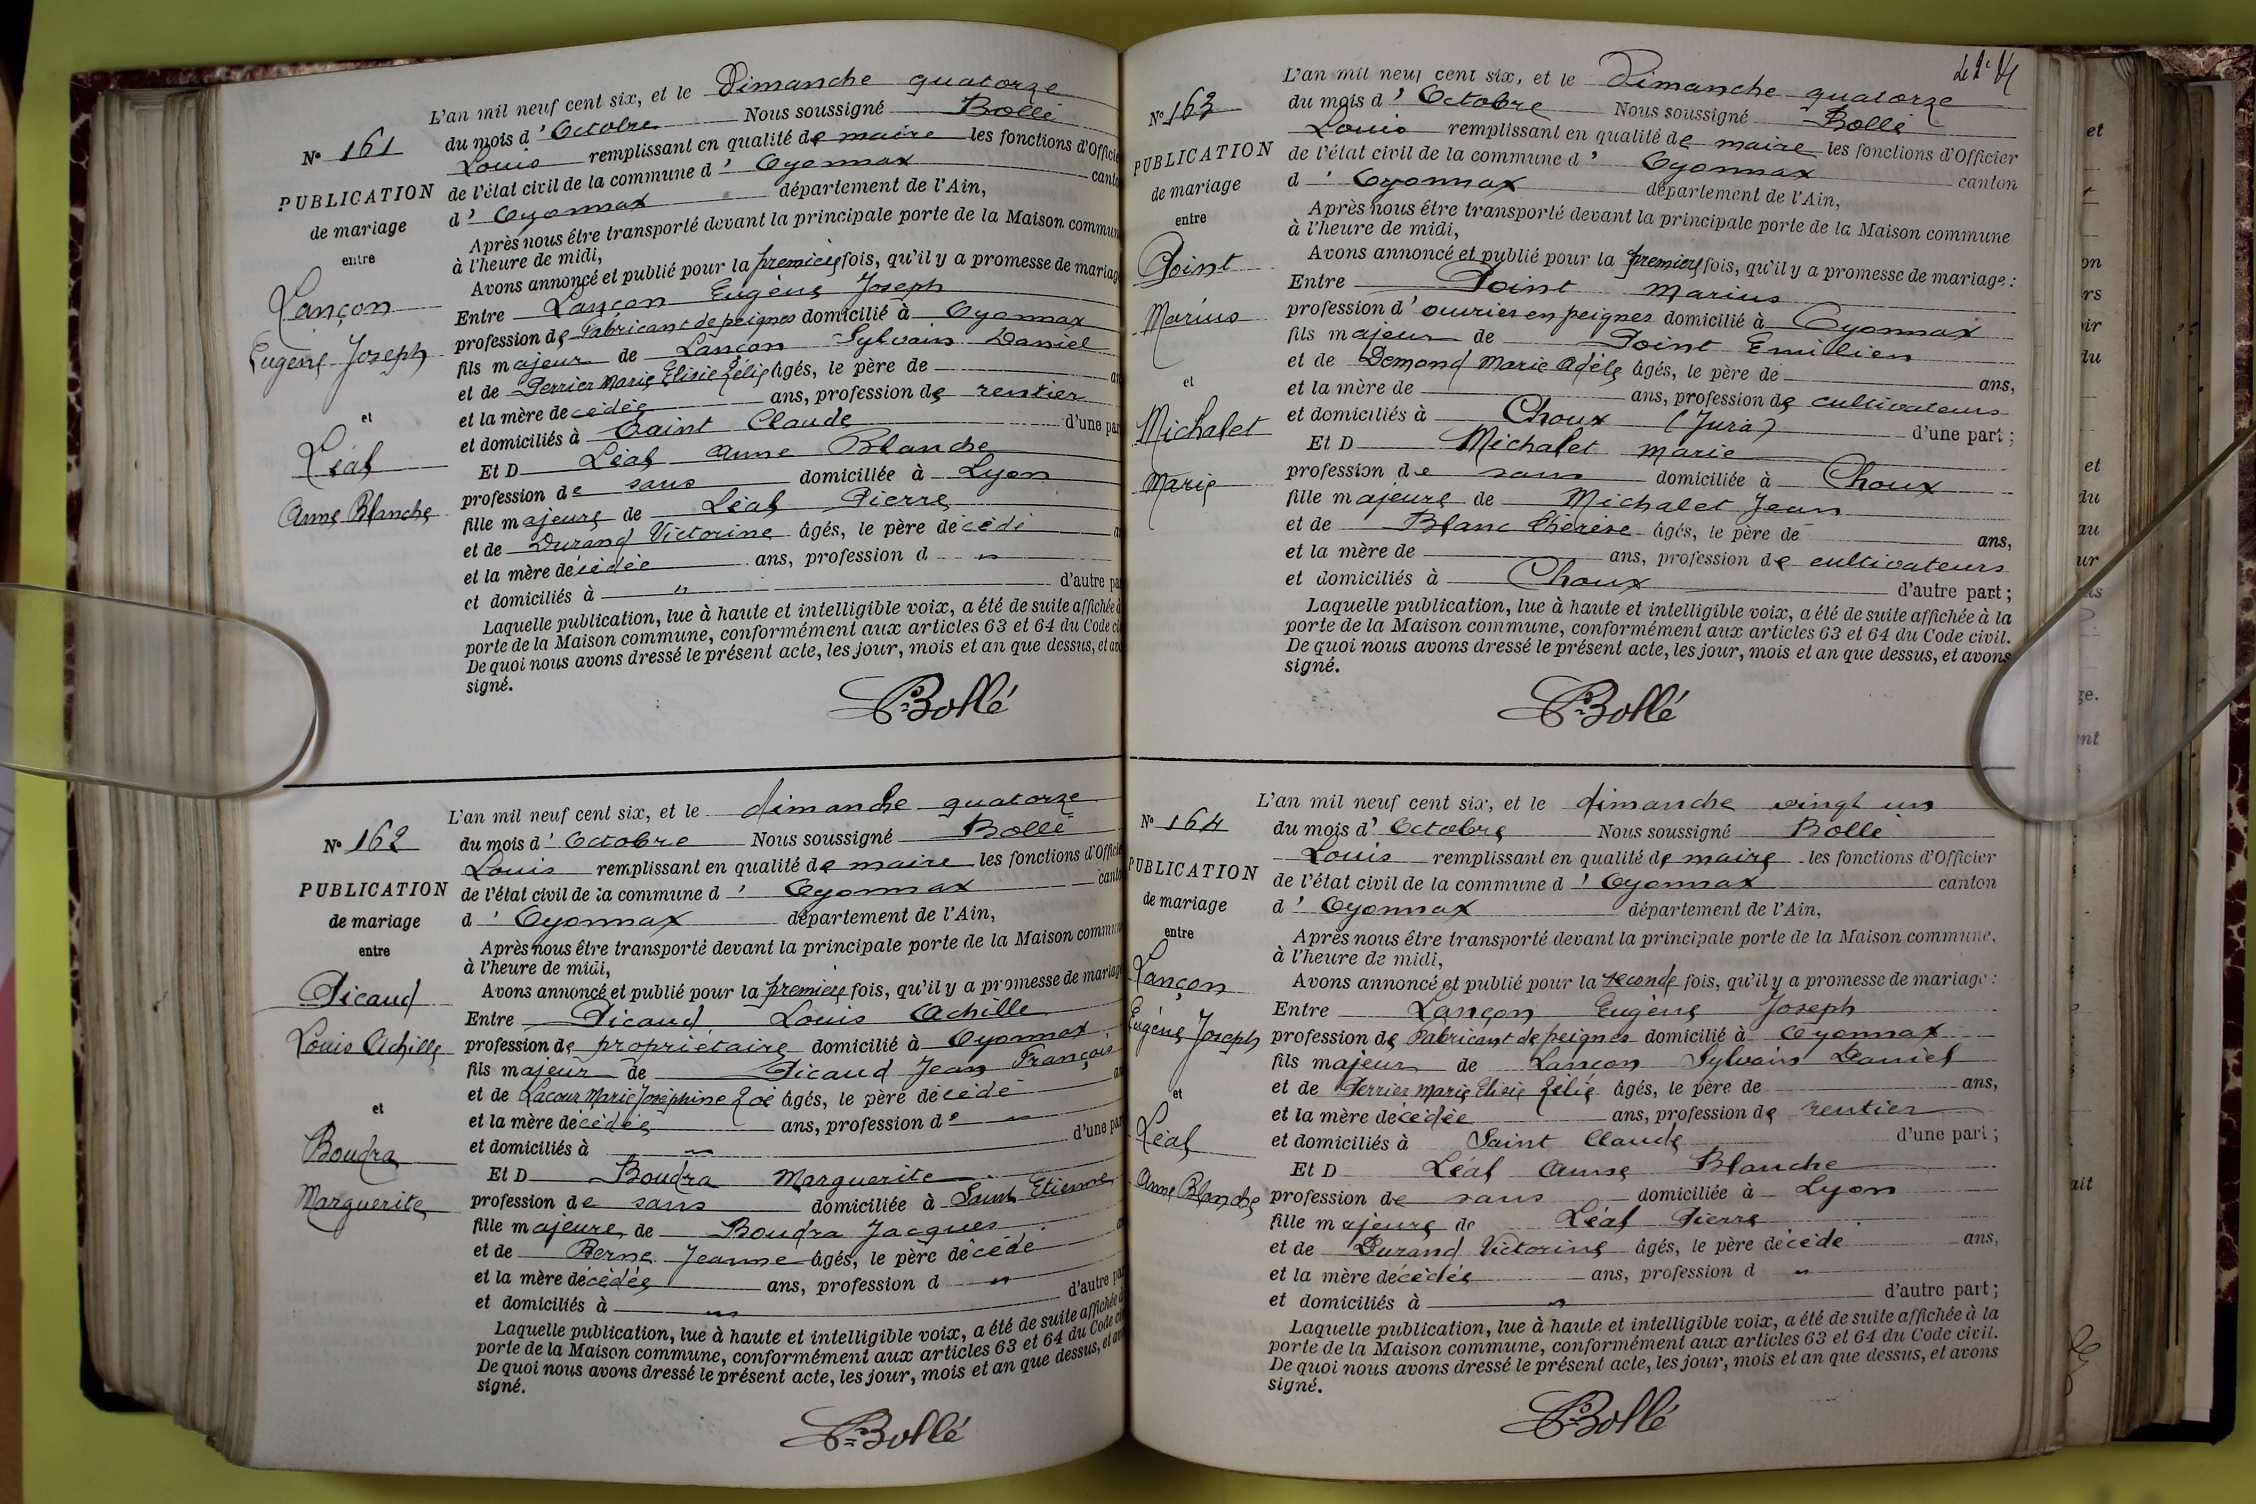 L'an mil neuf cent six, et le Dimanche quatorze
du mois d'Octobre Nous soussigné Bollé
Louis remplissant en qualité de maire les fonctions d'Officie
de l'état civil de la commune d'Oyonnax canto
d'Oyonnax département de l'Ain,
Après nous être transporté devant la principale porte de la Maison commun
à l'heure de midi,
Avons annoncé et publié pour la première fois, qu'il y a promesse de mariag
Entre Lançon Eugène Joseph
profession de Fabricant de peignes domicilié à Oyonnax
fils majeur de Lançon Sylvain Daniel
et de Perrier Marie Elisie Zélie âgés, le père de an
et la mère décédée ans, profession de rentier
et domiciliés à Saint Claude d'une par
Et D Léal Anne Blanche
profession de sans domiciliée à Lyon
fille majeure de Léal Pierre
et de Durand Victorine âgés, le père décédé a
et la mère décédée ans, profession d "
et domiciliés à " d'autre pa
Laquelle publication, lue à haute et intelligible voix, a été de suite affichée à
porte de la Maison commune, conformément aux articles 63 et 64 du Code ci
De quoi nous avons dressé le présent acte, les jour, mois et an que dessus, et avo
signé.
Bollé
N° 161
PUBLICATION
de mariage
entre
Lançon
Eugène Joseph
et
Léal
Anne Blanche
L'an mil neuf cent six, et le dimanche quatorze
du mois d'Octobre Nous soussigné Bollé
Louis remplissant en qualité de maire les fonctions d'Officie
de l'état civil de la commune d'Oyonnax canto
d'Oyonnax département de l'Ain,
Après nous être transporté devant la principale porte de la Maison commun
à l'heure de midi,
Avons annoncé et publié pour la première fois, qu'il y a promesse de mariag
Entre Picaud Louis Achille
profession de propriétaire domicilié à Oyonnax
fils majeur de Picaud Jean François
et de Lacour Marie Joséphine Zoé âgés, le père décédé an
et la mère décédée ans, profession de "
et domiciliés à " d'une par
Et D Boudra Marguerite
profession de sans domiciliée à Saint Etienne
fille majeure de Boudra Jacques
et de Berne Jeanne âgés, le père décédé a
et la mère décédée ans, profession d "
et domiciliés à " d'autre par
Laquelle publication, lue à haute et intelligible voix, a été de suite affichée à
porte de la Maison commune, conformément aux articles 63 et 64 du Code ci
De quoi nous avons dressé le présent acte, les jour, mois et an que dessus, et av
signé.
Bollé
N° 162
PUBLICATION
de mariage
entre
Picaud
Louis Achille
et
Boudra
Marguerite
L'an mil neuf cent six, et le Dimanche quatorze
du mois d'Octobre Nous soussigné Bollé
Louis remplissant en qualité de maire les fonctions d'Officier
de l'état civil de la commune d'Oyonnax canton
d'Oyonnax département de l'Ain,
Après nous être transporté devant la principale porte de la Maison commune
à l'heure de midi,
Avons annoncé et publié pour la première fois, qu'il y a promesse de mariage :
Entre Point Marius
profession d'ouvrier en peignes domicilié à Oyonnax
fils majeur de Point Emilien
et de Demond Marie Adèle âgés, le père de ans,
et la mère de ans, profession de cultivateurs
et domiciliés à Choux (Jura) d'une part ;
Et D Michalet Marie
profession de sans domiciliée à Choux
fille majeure de Michalet Jean
et de Blanc Thérèse âgés, le père de ans,
et la mère de ans, profession de cultivateurs
et domiciliés à Choux d'autre part ;
Laquelle publication, lue à haute et intelligible voix, a été de suite affichée à la
porte de la Maison commune, conformément aux articles 63 et 64 du Code civil.
De quoi nous avons dressé le présent acte, les jour, mois et an que dessus, et avons
signé.
Bollé
N° 163
PUBLICATION
de mariage
entre
Point
Marius
et
Michalet
Marie
L'an mil neuf cent six, et le dimanche vingt un
du mois d'Octobre Nous soussigné Bollé
Louis remplissant en qualité de maire les fonctions d'Officier
de l'état civil de la commune d'Oyonnax canton
d'Oyonnax département de l'Ain,
Après nous être transporté devant la principale porte de la Maison commune,
à l'heure de midi,
Avons annoncé et publié pour la seconde fois, qu'il y a promesse de mariage :
Entre Lançon Eugène Joseph
profession de Fabricant de peignes domicilié à Oyonnax
fils majeur de Lançon Sylvain Daniel
et de Perrier Marie Elisie Zélie âgés, le père de ans,
et la mère décédée ans, profession de rentier
et domiciliés à Saint Claude d'une part ;
Et D Léal Anne Blanche
profession de sans domiciliée à Lyon
fille majeure de Léal Pierre
et de Durand Victorine âgés, le père décédé ans,
et la mère décédée ans, profession d "
et domiciliés à " d'autre part ;
Laquelle publication, lue à haute et intelligible voix, a été de suite affichée à la
porte de la Maison commune, conformément aux articles 63 et 64 du Code civil.
De quoi nous avons dressé le présent acte, les jour, mois et an que dessus, et avons
signé.
Bollé
N° 164
PUBLICATION
de mariage
entre
Lançon
Eugène Joseph
et
Léal
Anne Blanche